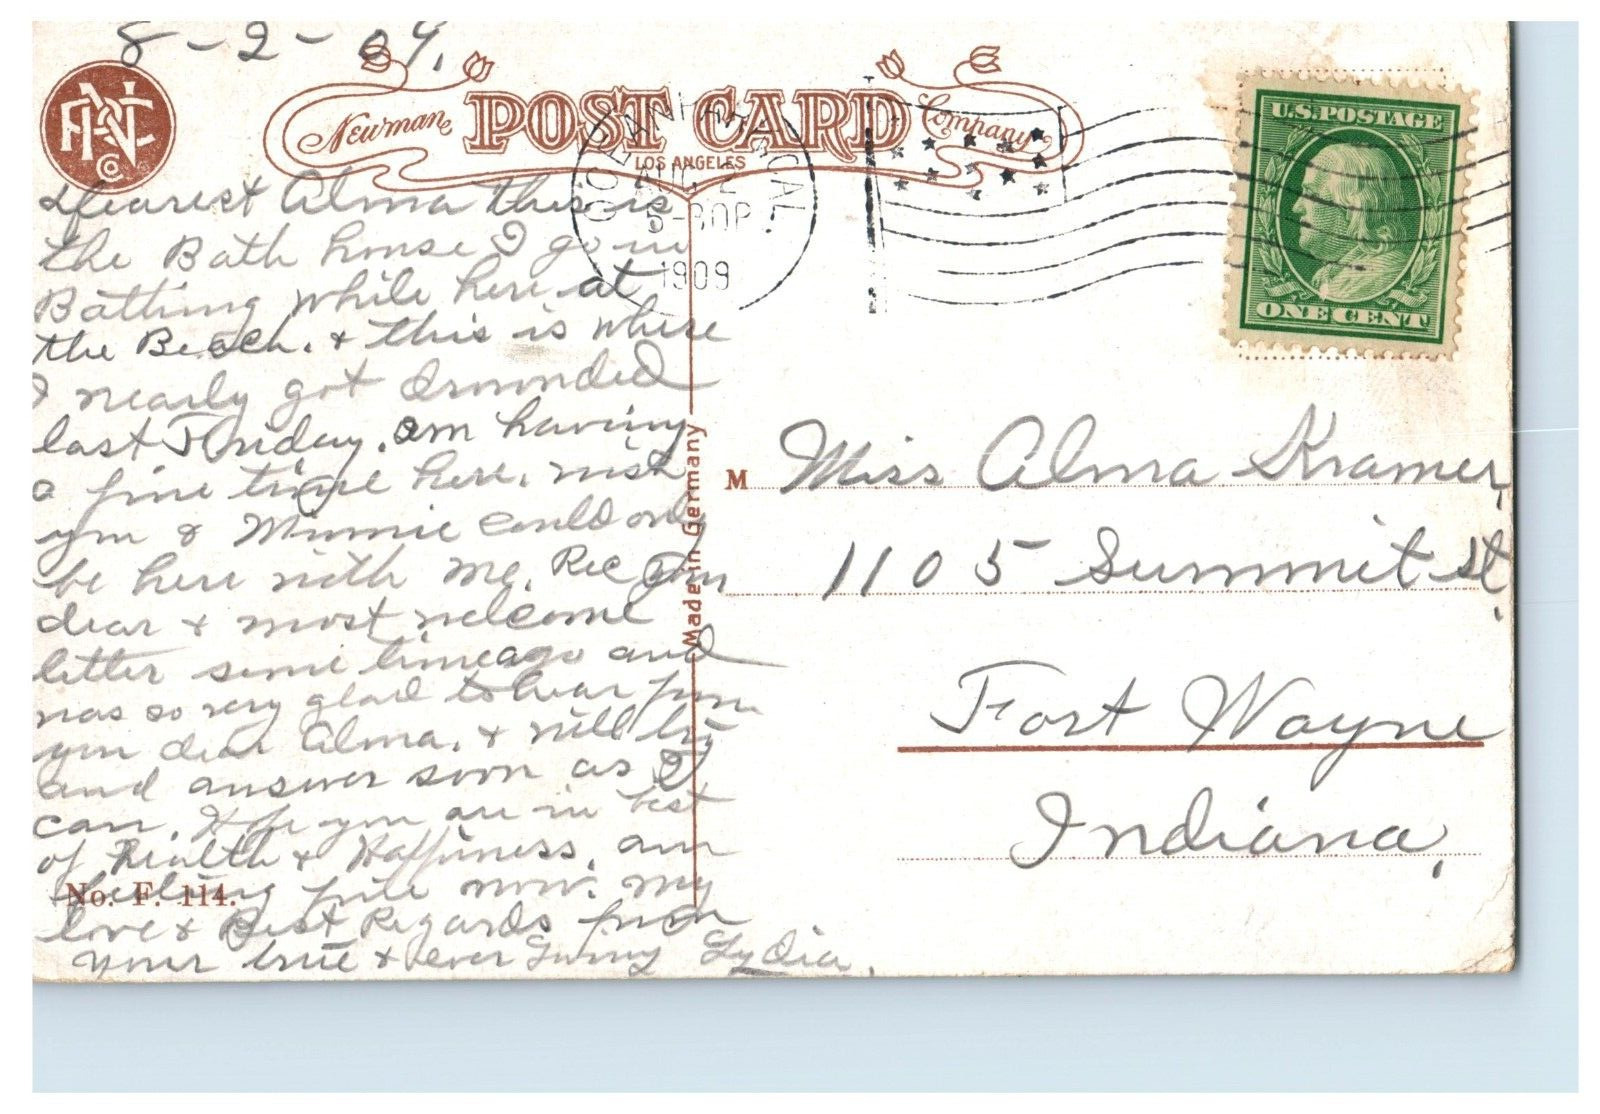 8-2-09.
Newman POST CARD Company
LOS ANGELES
OCEAN PARK CAL.
AUG 2
5-30P
1909
U.S. POSTAGE
ONE CENT
Dearest Alma this is
the Bath house I go in
Bathing while here at
the Beach. & this is where
I nearly got drownded
last Sunday. am having
a fine time here. wish
you & Minnie could only
be here with me. Rec your
dear & most welcome
letter some time ago and
was so very glad to hear from
you dear Alma. & will try
and answer soon as I
can. Hope you are in best
of Health & Happiness. am
feeling fine now. my
love & Best Regards from
your true & ever Lydia.
No. F. 114.
Made in Germany
Miss Alma Kramer,
1105 Summit St.
Fort Wayne
Indiana.